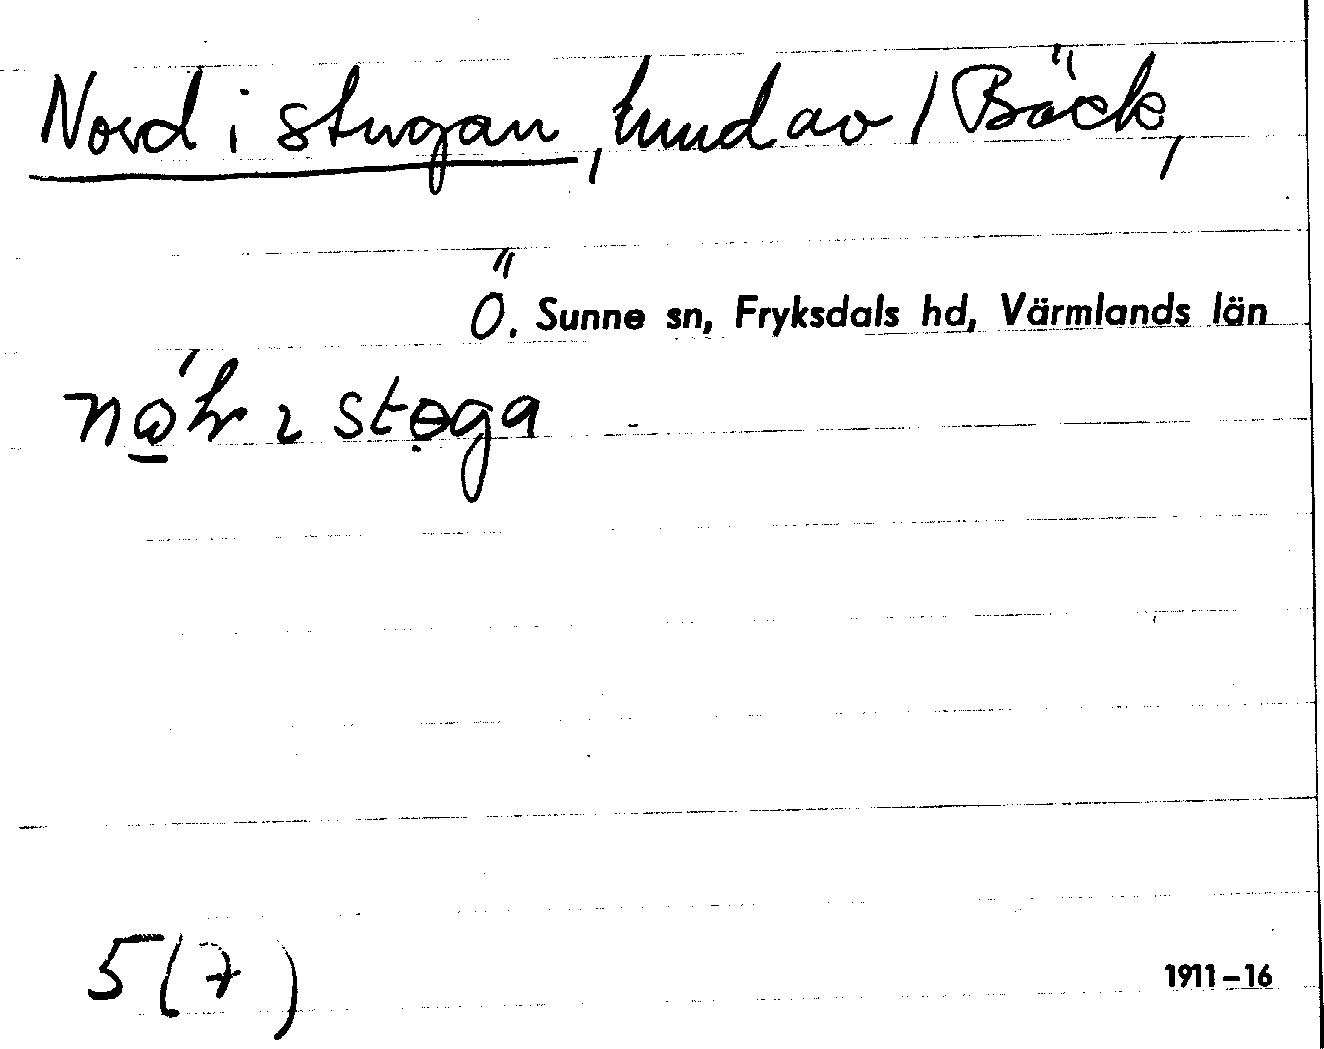 Nord i stugan, hmd av 1 Bäck,
Ö. Sunne sn, Fryksdals hd, Värmlands län
stoga
5(7)
1911–16